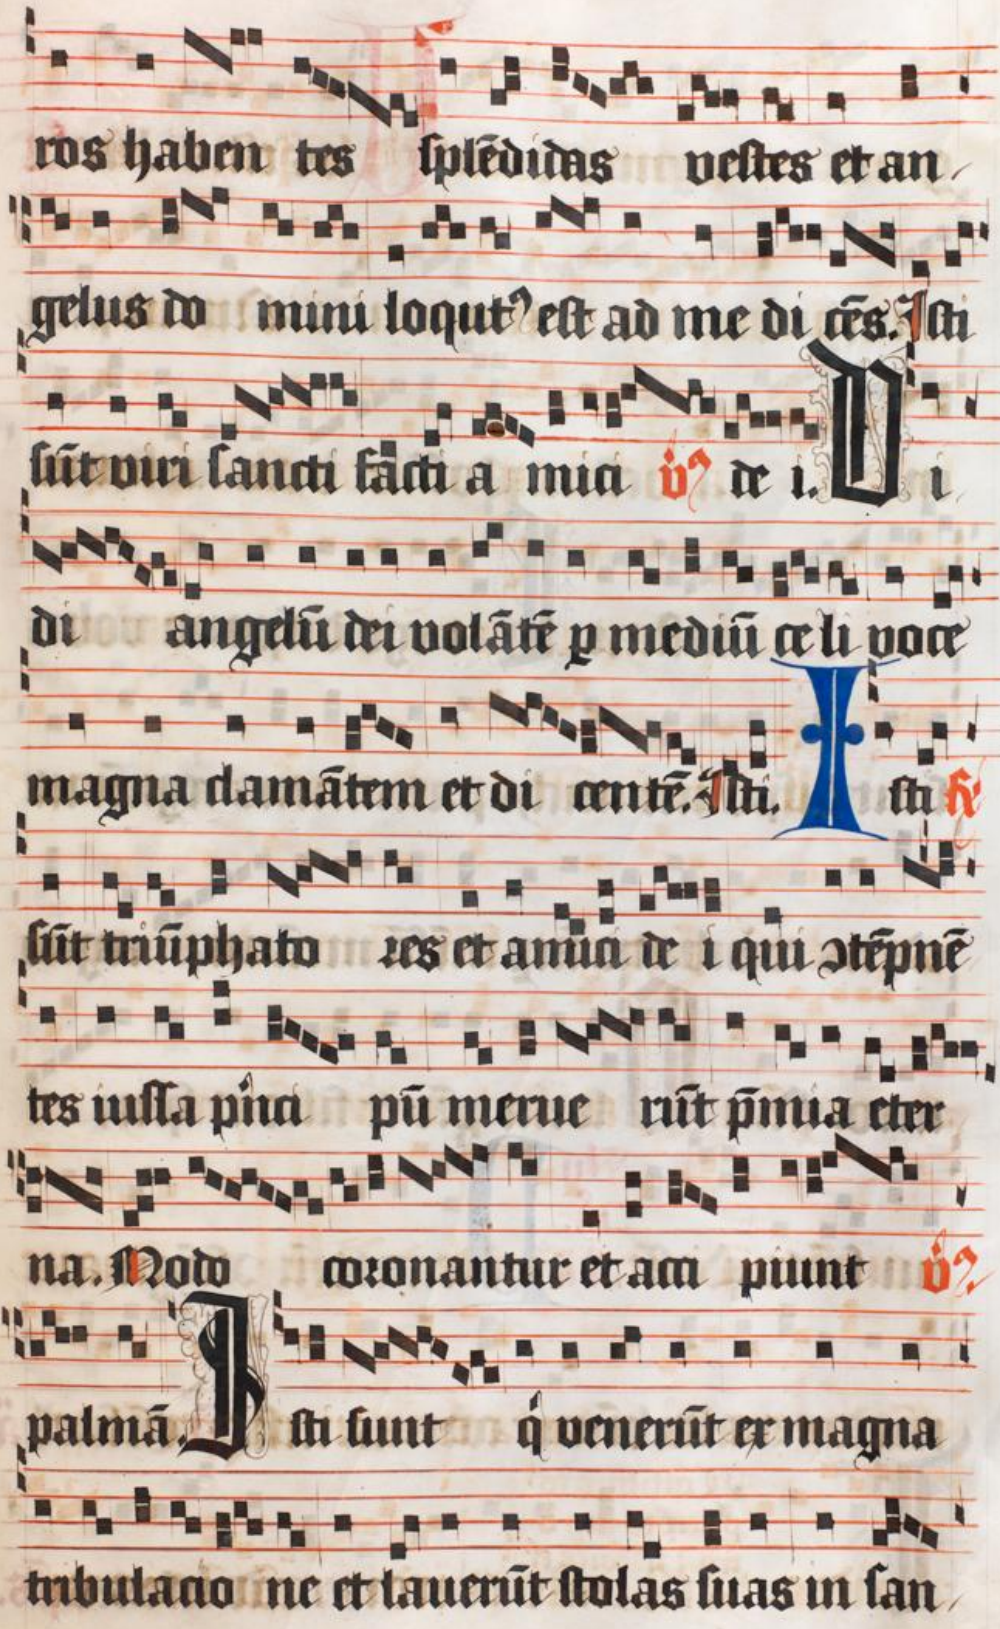 ros haben tes splēdidas vestes et an
gelus do mini loqutꝰ est ad me di cēs. Isti
sūt viri sancti fācti a mici ℣ de i. V i
di angelū dei volātē ꝑ mediū ce li voce
magna clamātem et di centē. Isti. I sti ℟
sūt triūphato res et amici de i qui ↄtēpnē
tes iussa pͥnci pū merue rūt p̄mia eter
na. Modo coronantur et acci piunt ℣
palmā. I sti sunt qͥ venerūt ex magna
tribulacio ne et lauerūt stolas suas in san